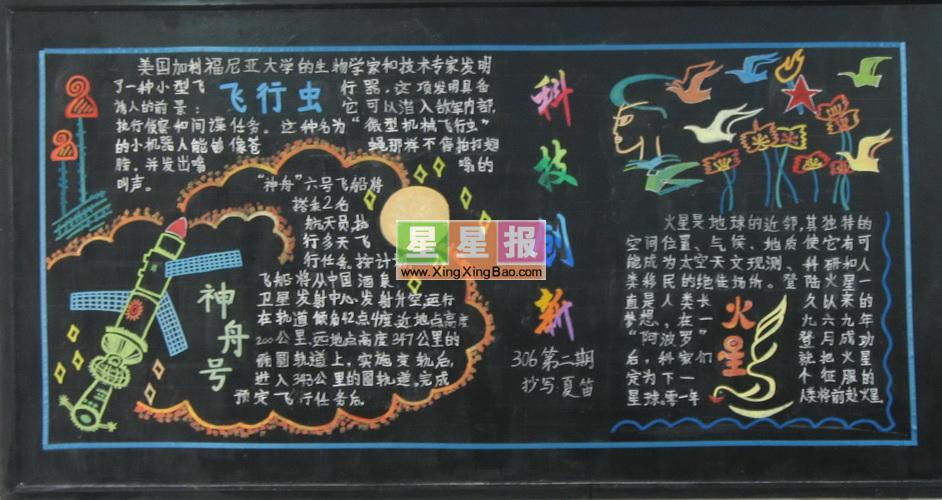 美国加利福尼亚大学的生物学家和技术专家发明
了一种小型飞行器,这项发明具备
诱人的前景:它可以潜入敌军内部,
执行侦察和间谍任务。这种名为“微型机械飞行虫”
的小机器人能够像苍蝇那样不停拍打翅
膀,并发出嗡嗡的
叫声。
飞行虫
“神舟”六号飞船将
搭乘2名
航天员,执
行多天飞
行任务。按计
飞船将从中国酒泉
卫星发射中心发射升空,运行
在轨道倾角42点4度,近地点高度
200公里,远地点高度347公里的
椭圆轨道上,实施变轨后,
进入343公里的圆轨道。完成
预定飞行任务后。
神舟号
科技创新
306第二期
抄写:夏笛
星星报
www.XingXingBao.com
火星是地球的近邻,其独特的
空间位置、气候、地质使它有可
能成为太空天文观测、科研和人
类移民的绝佳场所。登陆火星一
直是人类长久以来的
梦想,在一九六九年
“阿波罗”登月成功
后,科家们就把火星
定为下一个征服的
星球。零一年人类将前赴火星
火星